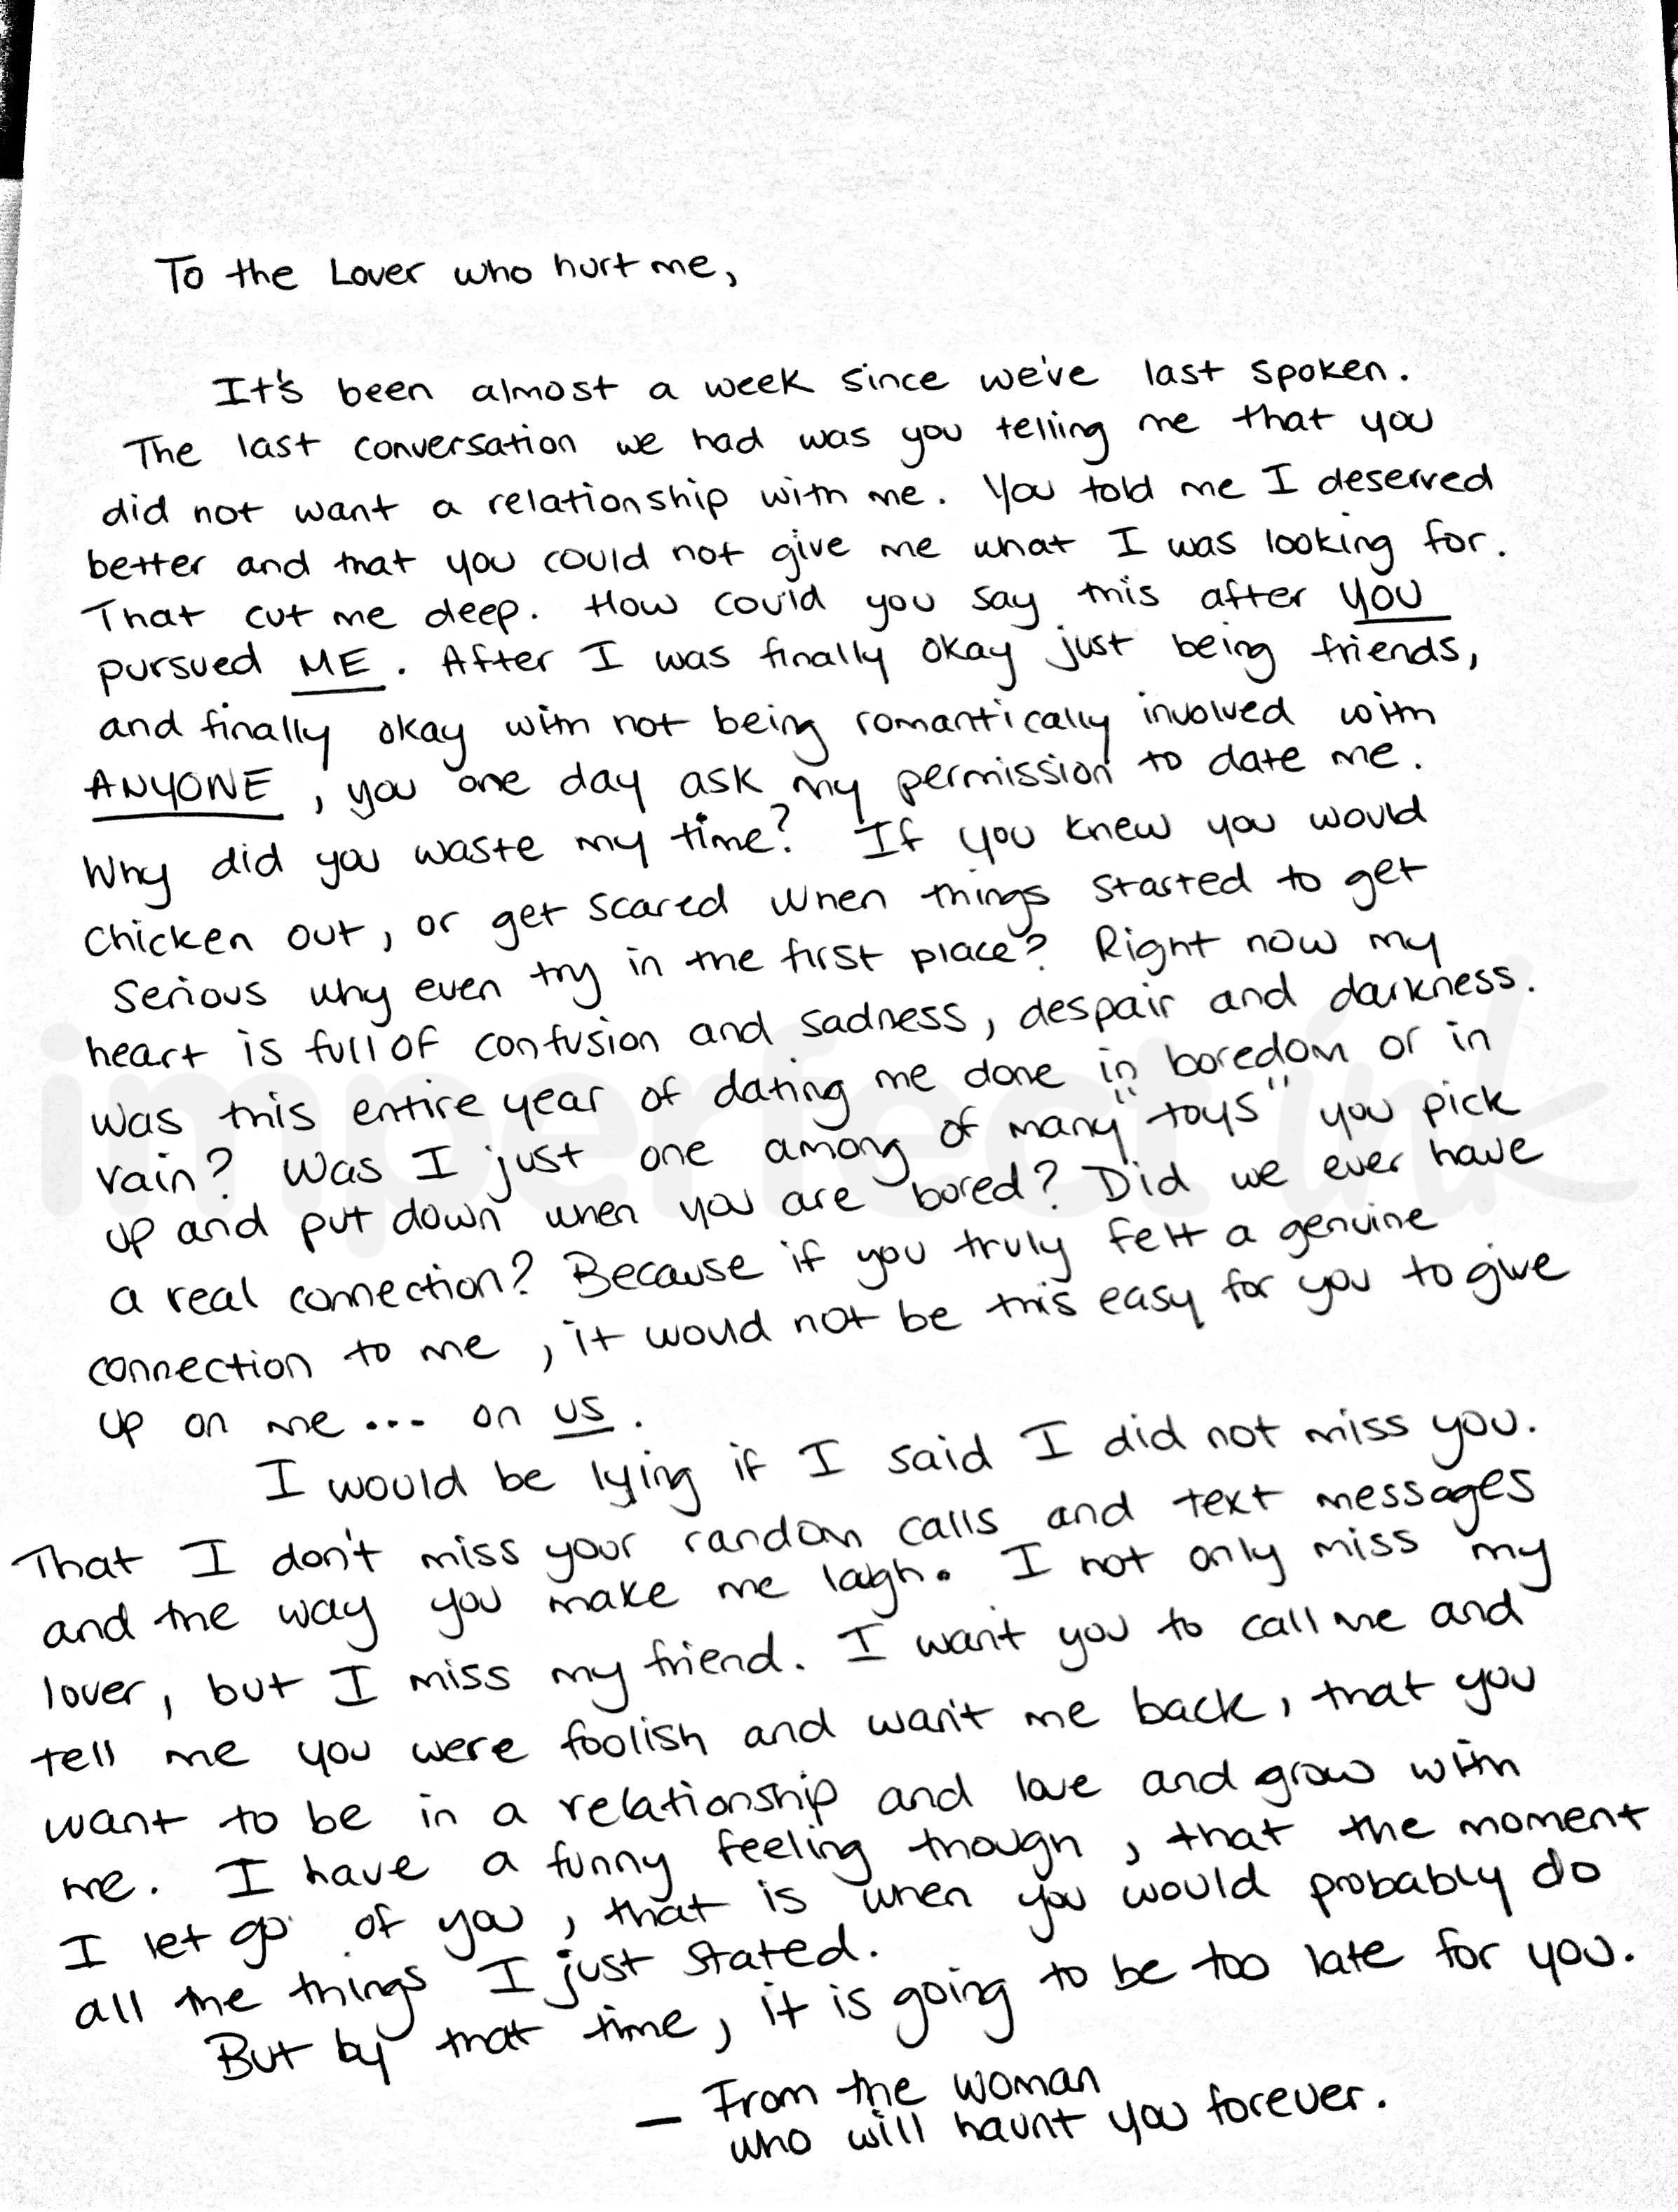 To the Lover who hurt me,
It's been almost a week since we've last spoken.
The last conversation we had was you telling me that you
did not want a relationship with me. You told me I deserved
better and that you could not give me what I was looking for.
That cut me deep. How could you say this after YOU
pursued ME. After I was finally okay just being friends,
and finally okay with not being romantically involved with
ANYONE, you one day ask my permission to date me.
Why did you waste my time? If you knew you would
chicken out, or get scared when things started to get
serious why even try in the first place? Right now my
heart is full of confusion and sadness, despair and darkness.
Was this entire year of dating me done in boredom or in
vain? Was I just one among of many "toys" you pick
up and put down when you are bored? Did we ever have
a real connection? Because if you truly felt a genuine
connection to me, it would not be this easy for you to give
up on me... on us.
I would be lying if I said I did not miss you.
That I don't miss your random calls and text messages
and the way you make me laugh. I not only miss my
lover, but I miss my friend. I want you to call me and
tell me you were foolish and want me back, that you
want to be in a relationship and love and grow with
me. I have a funny feeling though, that the moment
I let go of you, that is when you would probably do
all the things I just stated.
But by that time, it is going to be too late for you.
— From the woman
who will haunt you forever.
imperfect ink